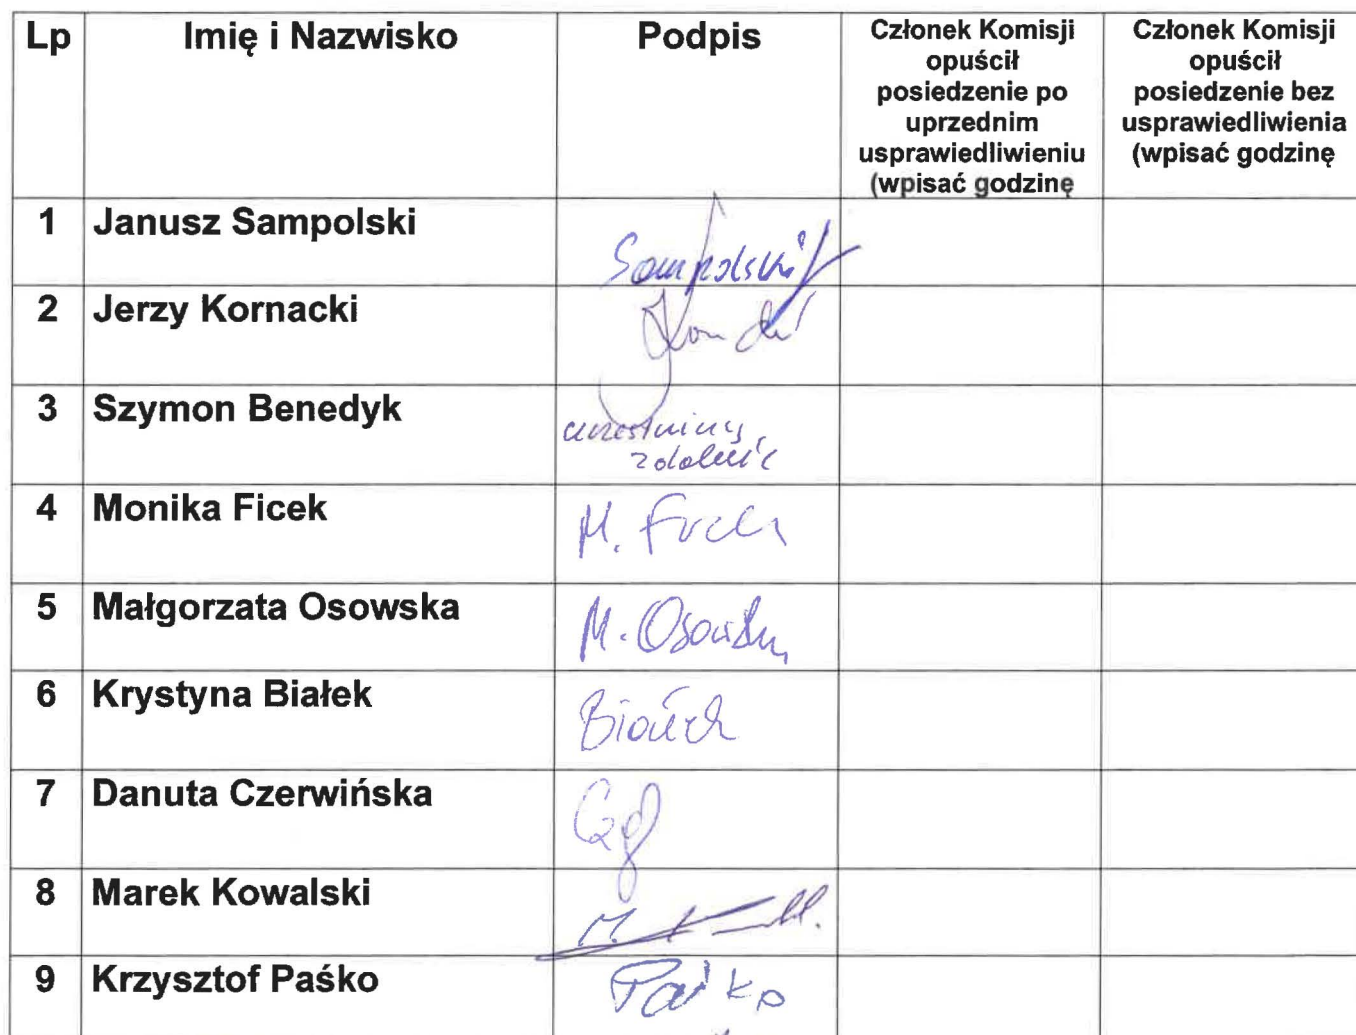 Lp Imię i Nazwisko Podpis Członek Komisji opuścił posiedzenie po uprzednim usprawiedliwieniu (wpisać godzinę Członek Komisji opuścił posiedzenie bez usprawiedliwienia (wpisać godzinę
1 Janusz Sampolski Sampolski
2 Jerzy Kornacki
3 Szymon Benedyk uczestniczy
zdalnie
4 Monika Ficek M. Ficek
5 Małgorzata Osowska M. Osowska
6 Krystyna Białek Białek
7 Danuta Czerwińska
8 Marek Kowalski M.
9 Krzysztof Paśko Paśko